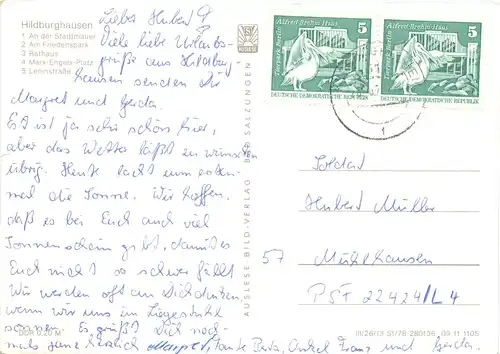 Hildburghausen
1 An der Stadtmauer
2 Am Friedenspark
3 Rathaus
4 Marx-Engels-Platz
5 Leninstraße
Lieber Hubert!
Viele liebe Urlaubs-
grüße aus Hildburg-
hausen senden Dir
Margret und Gerda.
Es ist ja sehr schön hier,
aber das Wetter läßt zu wünschen
übrig. Heute lacht zum ersten-
mal die Sonne. Wir hoffen,
daß es bei Euch auch viel
Sonnenschein gibt, damit es
Euch nicht so schwer fällt
Wir werden oft an Dich denken,
wenn wir uns im Liegestuhl
sonnen. Es grüßt Dich noch-
mals ganz herzlich Margret,
Tante Onkel Franz und Gerda.
DDR 0,20 M
AUSLESE
AUSLESE BILD-VERLAG · BAD SALZUNGEN
Alfred-Brehm-Haus
5
Tierpark Berlin
DEUTSCHE DEMOKRATISCHE REPUBLIK
Alfred-Brehm-Haus
5
Tierpark Berlin
DEUTSCHE DEMOKRATISCHE REPUBLIK
1
Soldat
Hubert Müller
57 Mühlhausen
PSF 22424/L4
III/26/13 S1/76 280136 09 11 1105